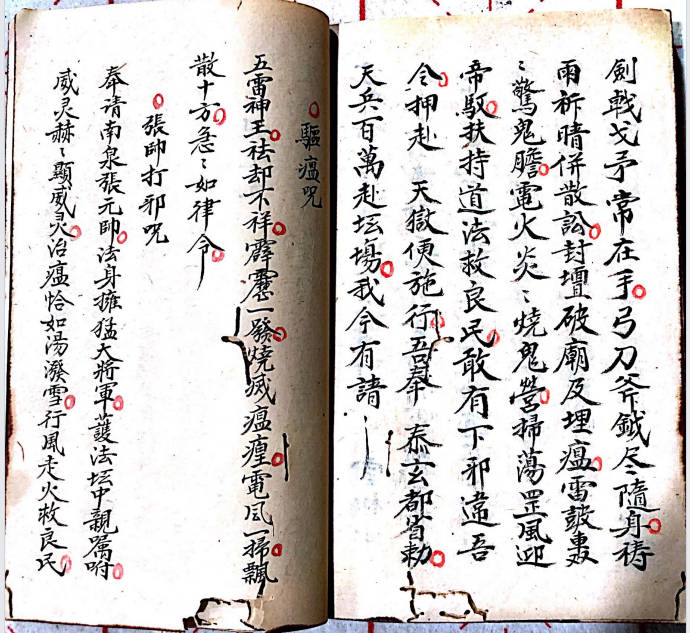 劍戟戈矛常在手弓刀斧鉞尽隨身禱
雨祈晴併散訟封壇破廟及埋瘟雷鼓轟
〻驚鬼膽電火炎〻燒鬼營掃蕩罡風迎
帝馭扶持道法救良民敢有下邪違吾
令押赴 天獄便施行吾奉 泰玄都省勅
天兵百萬赴坛塲我今有請
驅瘟咒
五雷神王祛却不祥霹靂一發燒滅瘟瘴電風一掃飄
散十方急〻如律令
張帥打邪咒
奉请南泉張元帥法身擁猛大將軍護法坛中親嘱咐
威灵赫〻顯威灵治瘟恰如湯潑雪行風走火救良民